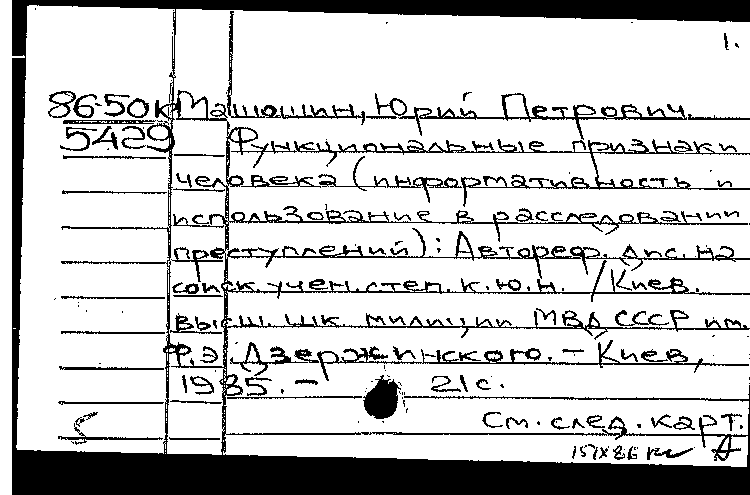 1.
86-50к Матюшин, Юрий Петрович.
5429 Функциональные признаки
человека (информативность и
использование в расследовании
преступлений): Автореф. дис. на
соиск. учен. степ. к.ю.н. / Киев.
высш. шк. милиции МВД СССР им.
Ф.Э. Дзержинского. – Киев,
1985. – 21 с.
См. след. карт.